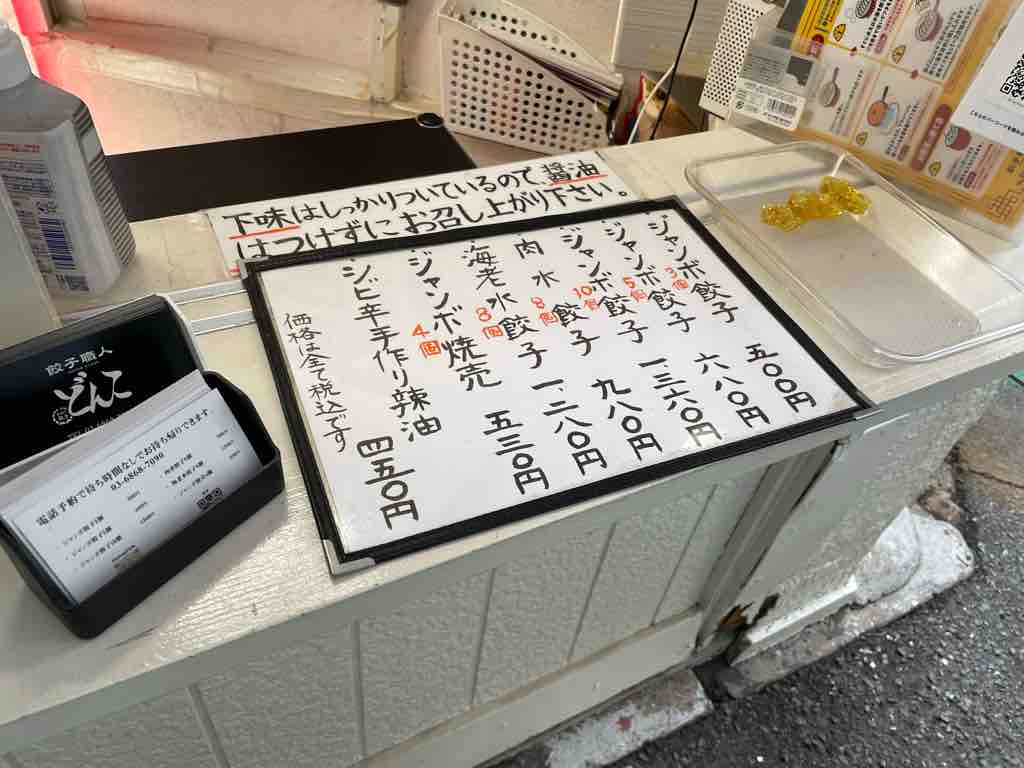 下味はしっかりついているので、醤油
はつけずにお召し上がり下さい。
ジャンボ餃子 3個 五〇〇円
ジャンボ餃子 5個 六八〇円
ジャンボ餃子 10個 一三六〇円
肉水餃子 8個 九八〇円
海老水餃子 8個 一、二八〇円
ジャンボ焼売 4個 五三〇円
シビ辛手作り辣油 四五〇円
価格は全て税込です
餃子職人
どんこ
電話予約で待ち時間なしでお持ち帰りできます
03-6868-7090